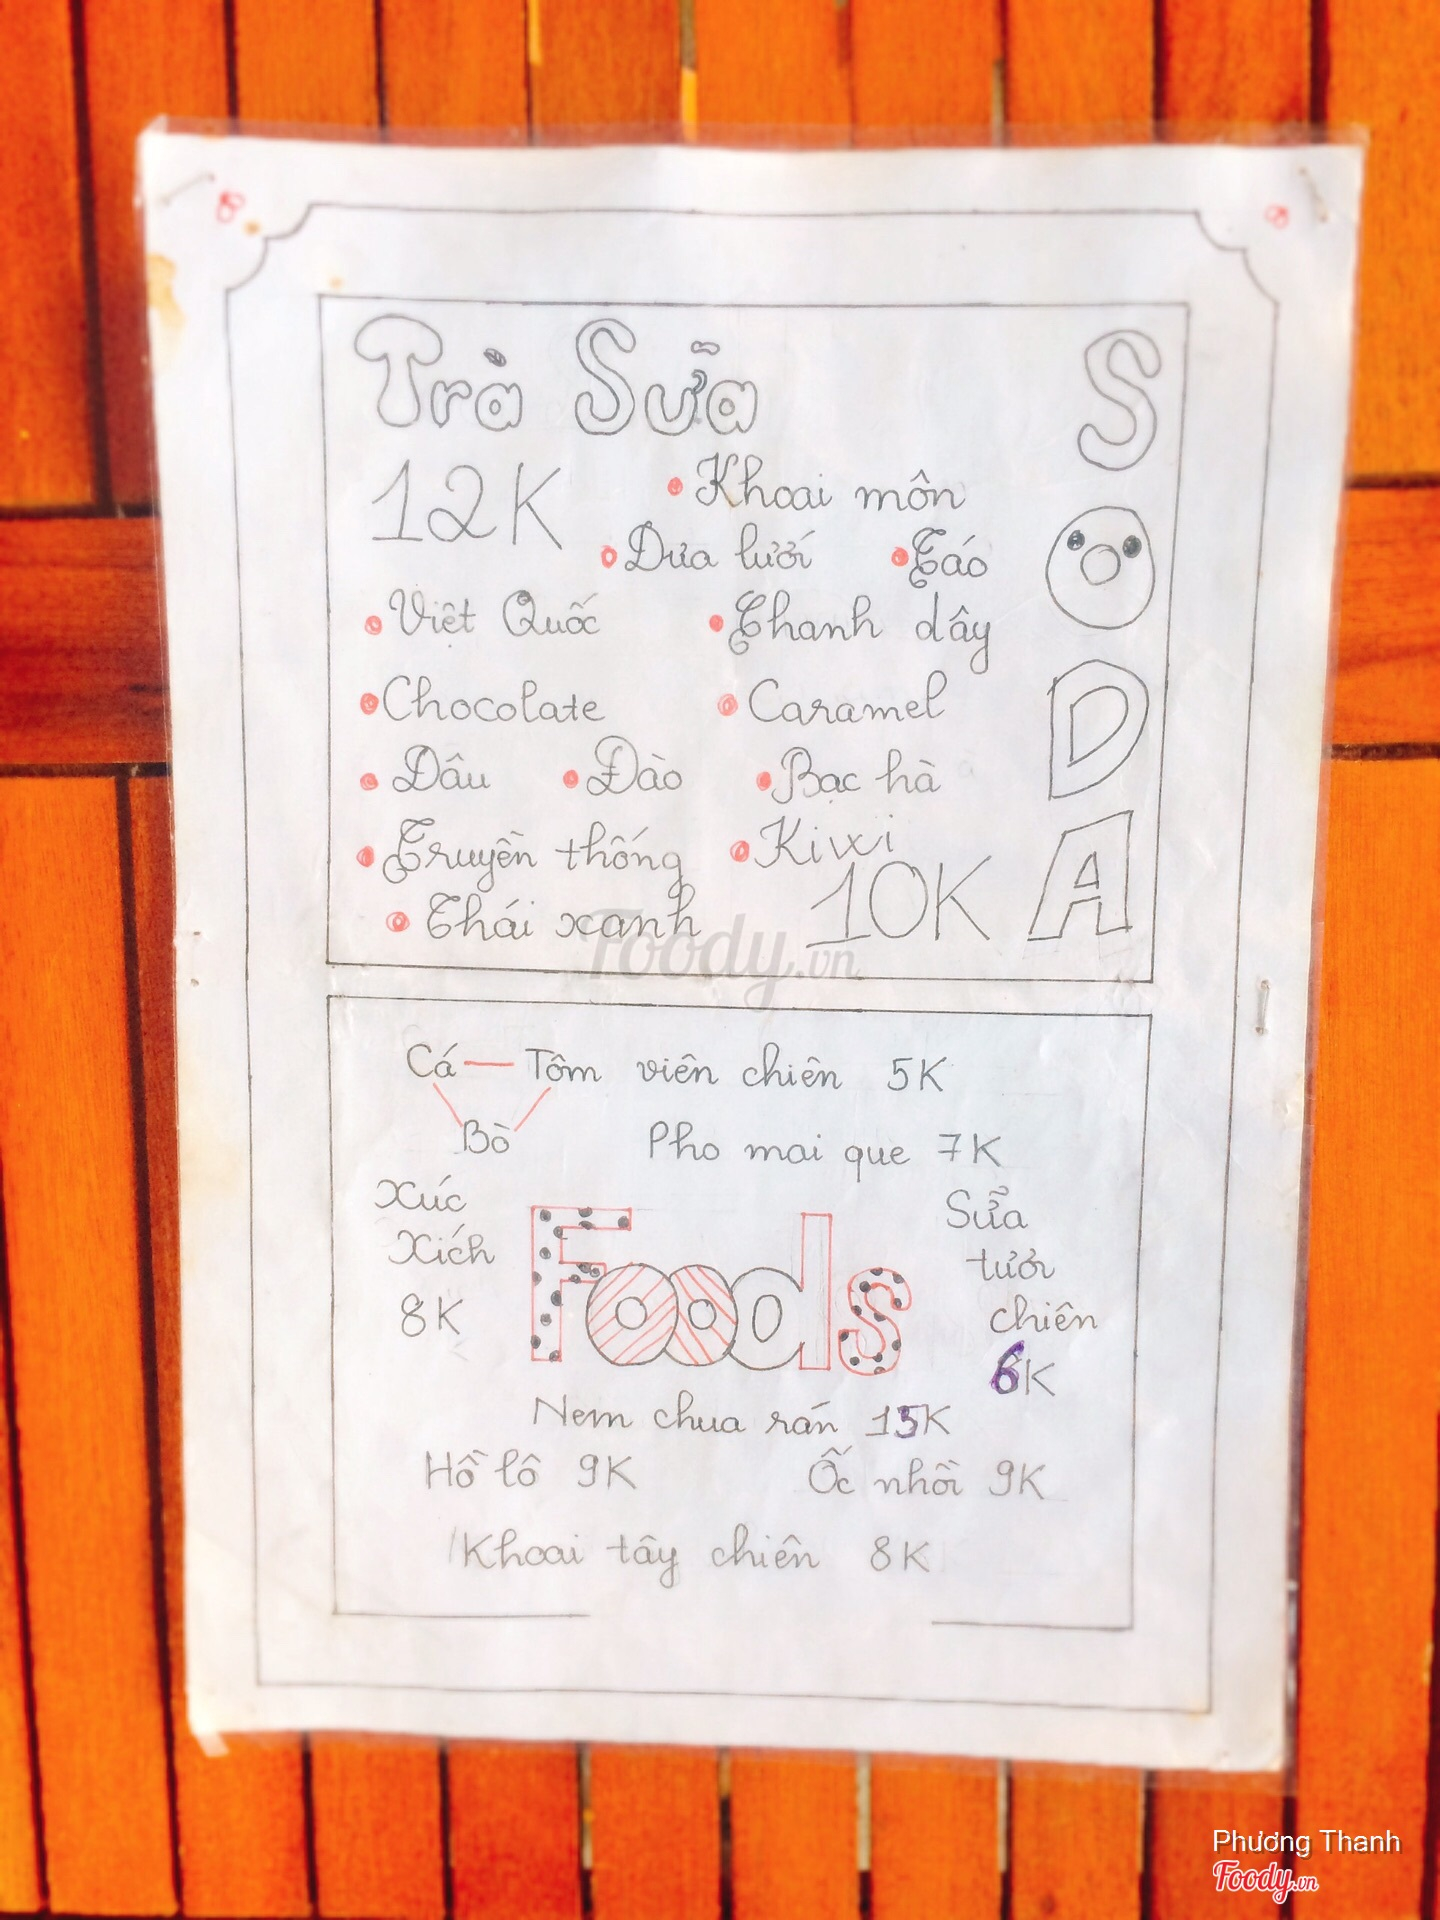 Trà Sữa
SODA
12K
Khoai môn
Dưa lưới Táo
Việt Quốc Thanh dây
Chocolate Caramel
Dâu Đào Bạc hà
Truyền thống Kiwi
10K
Thái xanh
Foody.vn
Cá — Tôm viên chiên 5K
Bò Pho mai que 7K
Xúc Xích 8K
Foods
Sữa tươi chiên 6K
Nem chua rán 15K
Hồ lô 9K Ốc nhồi 9K
Khoai tây chiên 8K
Phương Thanh
Foody.vn